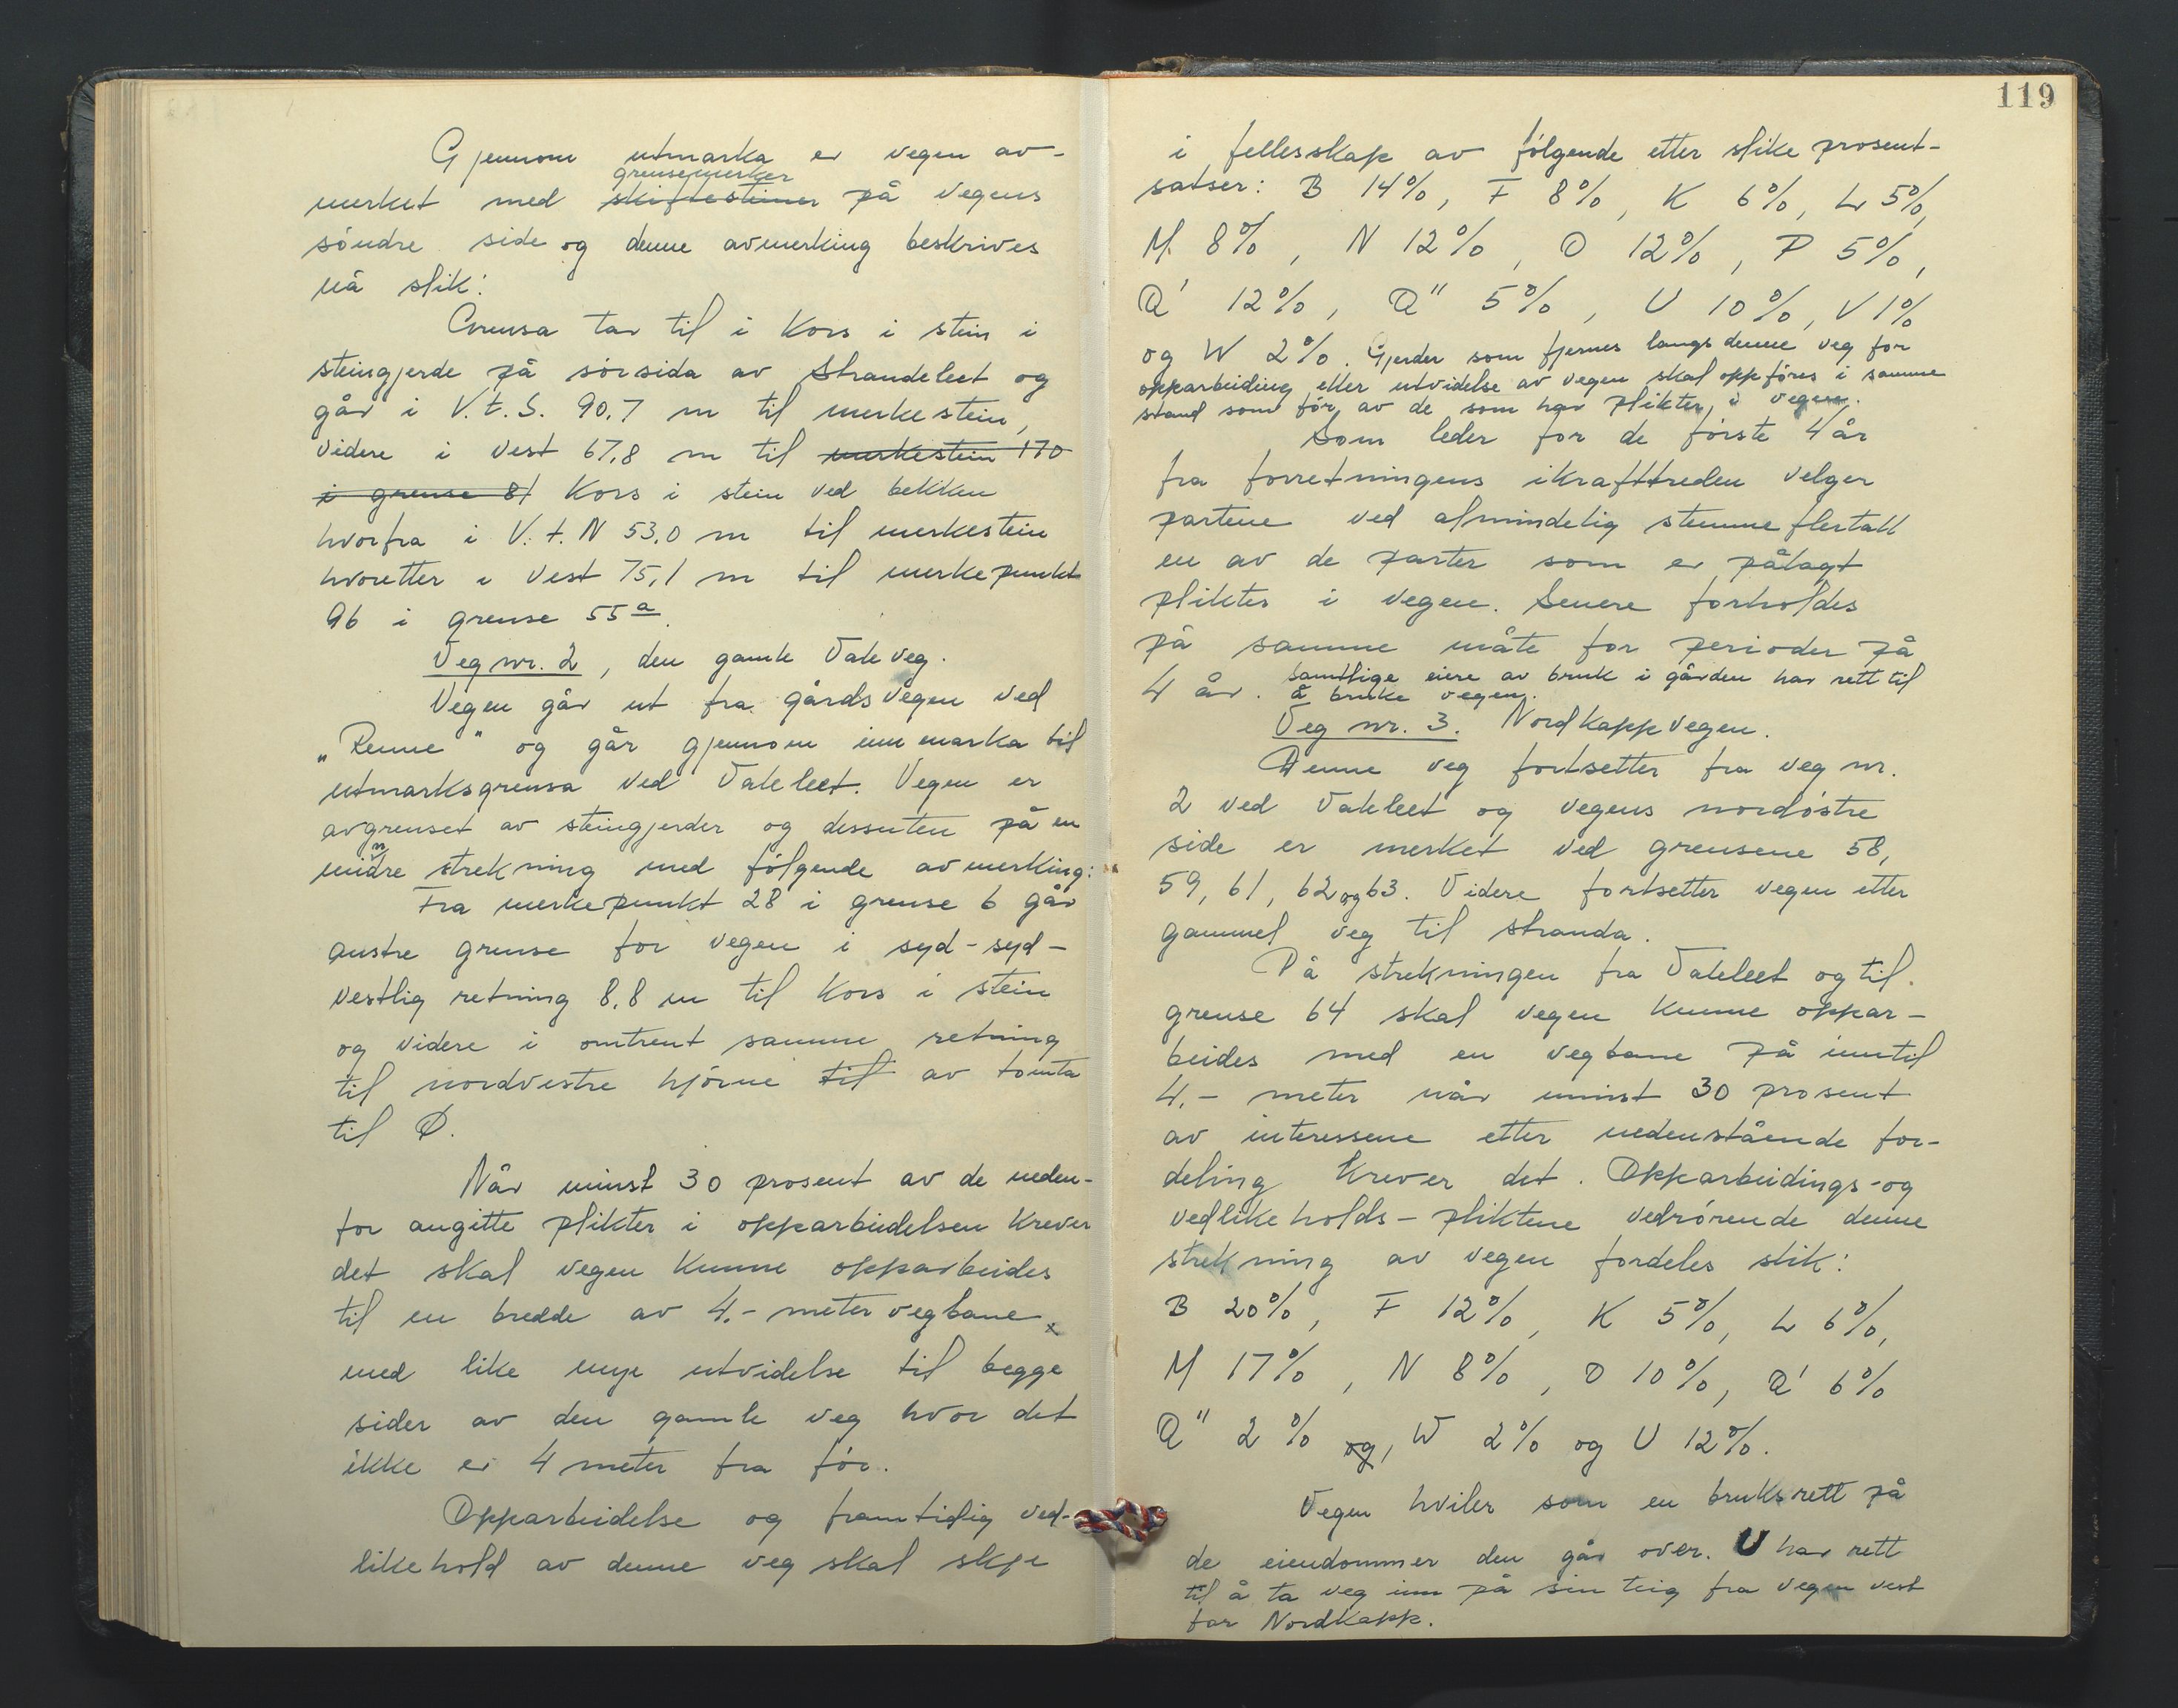 Gjennom utmarka er vegen av-
grensemerker
merket med skiftesteiner på vegens
søndre side og denne avmerking beskrives
nå slik:
Grensa tar til i kors i stein i
steingjerde på sørsida av Strandeleet og
går i V.t.S. 90,7 m til merkestein,
videre i vest 67,8 m til merkestein 170
i grense 81 kors i stein ved bekken
hvorfra i V.t.N 53,0 m til merkestein
hvoretter i vest 75,1 m til merkepunkt
96 i grense 55a.
Veg nr. 2, den gamle Valeveg.
Vegen går ut fra gårdsvegen ved
„Renne" og går gjennom innmarka til
utmarksgrensa ved Valeleet. Vegen er
avgrenset av steingjerder og dessuten på en
mindre strekning med følgende avmerking:
Fra merkepunkt 28 i grense 6 går
austre grense for vegen i syd-syd-
vestlig retning 8,8 m til kors i stein
og videre i omtrent samme retning
til nordvestre hjørne til av tomta
til Ø.
Når minst 30 prosent av de neden-
for angitte plikter i opparbeidelsen krever
det skal vegen kunne opparbeides
til en bredde av 4.- meter vegbane x
med like mye utvidelse til begge
sider av den gamle veg hvor det
ikke er 4 meter fra før.
Opparbeidelse og framtidig ved-
likehold av denne veg skal skje
119
i fellesskap av følgende etter slike prosent-
satser: B 14%, F 8%, K 6%, L 5%,
M 8%, N 12%, O 12%, P 5%,
Q' 12%, Q" 5%, U 10%, V 1%
og W 2%. Gjerder som fjernes langs denne veg for
opparbeiding eller utvidelse av vegen skal oppføres i samme
stand som før av de som har plikter i vegen.
Som leder for de første 4 år
fra forretningens ikrafttreden velger
partene ved almindelig stemmeflertall
en av de parter som er pålagt
plikter i vegen. Senere forholdes
på samme måte for perioder på
4 år. Samtlige eiere av bruk i gården har rett til
å bruke vegen.
Veg nr. 3. Nordkappvegen.
Denne veg fortsetter fra veg nr.
2 ved Valeleet og vegens nordøstre
side er merket ved grensene 58,
59, 61, 62 og 63. Videre fortsetter vegen etter
gammel veg til stranda.
På strekningen fra Valeleet og til
grense 64 skal vegen kunne oppar-
beides med en vegbane på inntil
4.- meter når minst 30 prosent
av interessene etter nedenstående for-
deling krever det. Opparbeidings- og
vedlikeholds-pliktene vedrørende denne
strekning av vegen fordeles slik:
B 20%, F 12%, K 5%, L 6%,
M 17%, N 8%, O 10%, Q' 6%
Q" 2% og, W 2% og U 12%.
Vegen hviler som en bruksrett på
de eiendommer den går over. U har rett
til å ta veg inn på sin teig fra vegen vest
for Nordkapp.